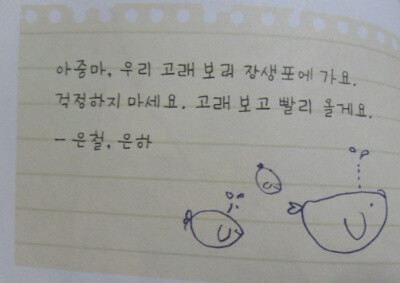 아줌마, 우리 고래 보러 장생포에 가요.
걱정하지 마세요. 고래 보고 빨리 올게요.
- 은철, 은하